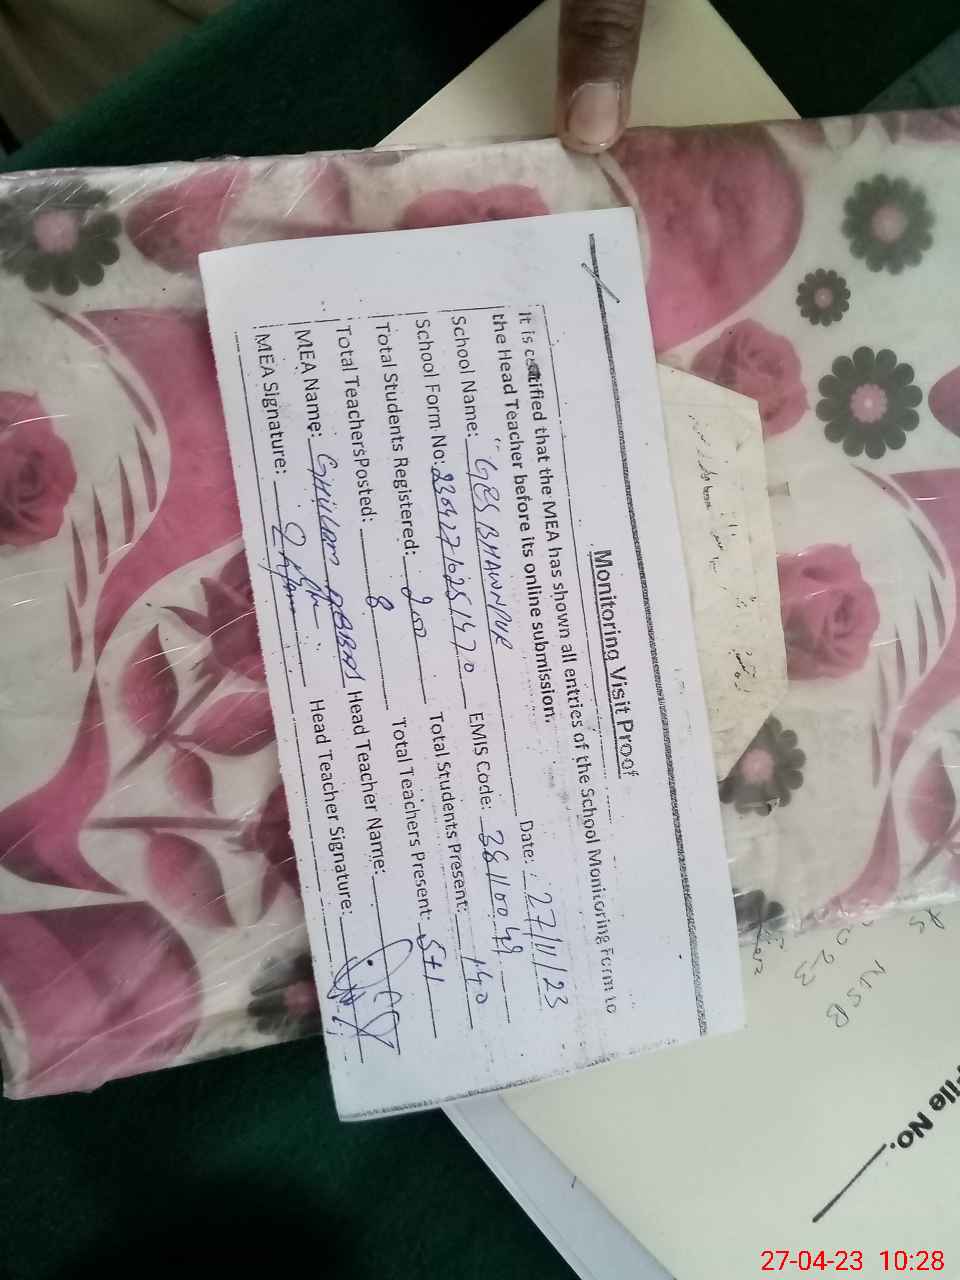 Monitoring Visit Proof
It is certified that the MEA has shown all entries of the School Monitoring Form to
the Head Teacher before its online submission.
School Name: GES BHAWNPUR Date: 27/11/23
School Form No: 23042710251470 EMIS Code: 38110049
Total Students Registered: 200 Total Students Present: 140
Total TeachersPosted: 8 Total Teachers Present: 5+1
MEA Name: GHULAM ABBAS Head Teacher Name:
MEA Signature: Head Teacher Signature:
File No.
27-04-23 10:28